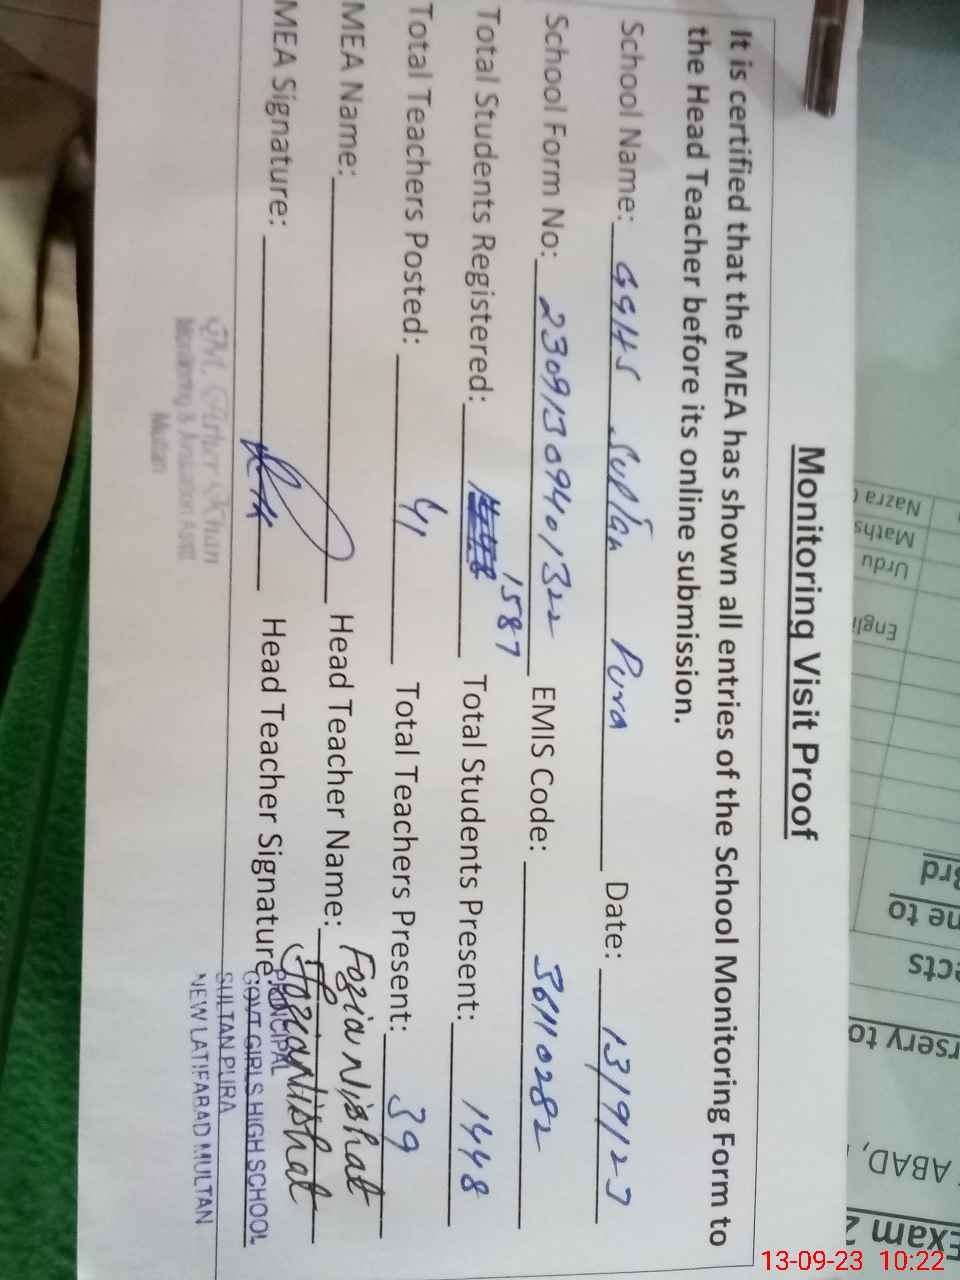 Monitoring Visit Proof
It is certified that the MEA has shown all entries of the School Monitoring Form to
the Head Teacher before its online submission.
School Name: GGHS Sultan Pura Date: 13/9/23
School Form No: 23091309401322 EMIS Code: 36110282
Total Students Registered: 1587 Total Students Present: 1448
Total Teachers Posted: 41 Total Teachers Present: 39
MEA Name: Head Teacher Name: Fozia Nishat
MEA Signature: Head Teacher Signature: Fozia Nishat
PRINCIPAL
GOVT GIRLS HIGH SCHOOL
SULTAN PURA
NEW LATIFABAD MULTAN
Khan
Monitoring & Assistant
Multan
Nazra
Maths
Urdu
Engli
3rd
ne to
ects
rsery to
ABAD,
Exam
13-09-23 10:22